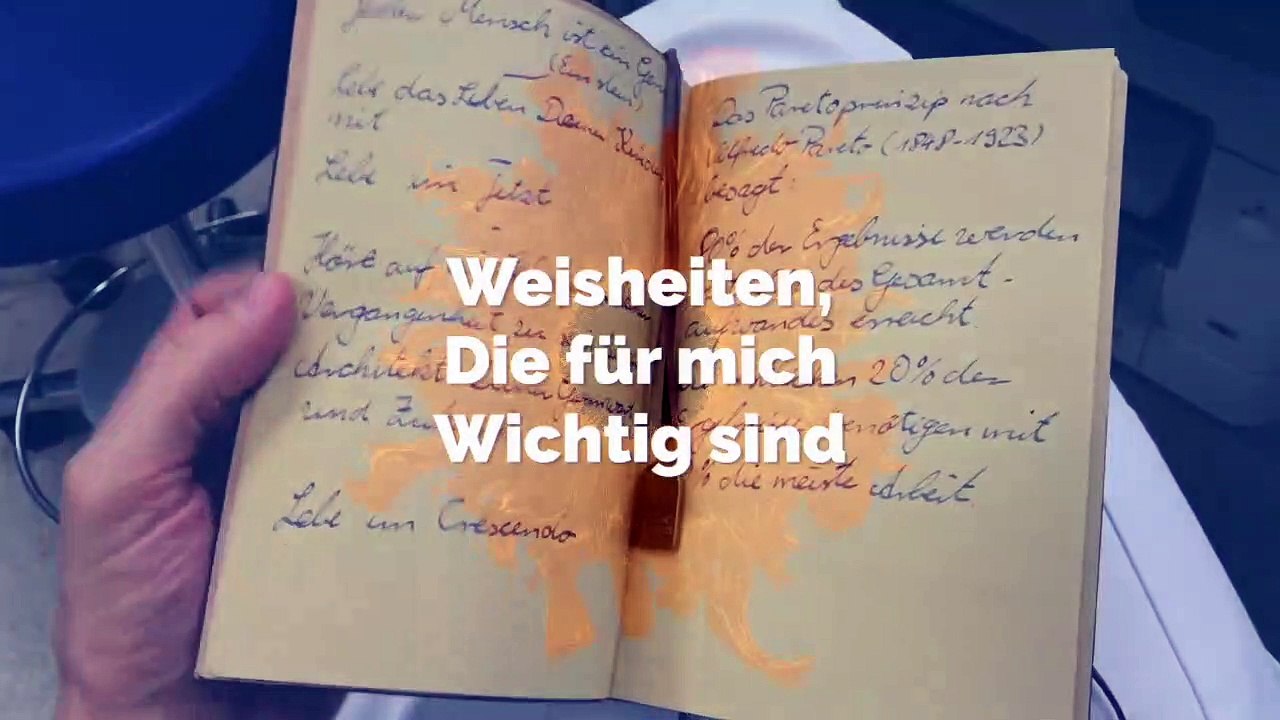 Jeder Mensch ist ein Gen
(Einstein)
Lebe das Leben Deiner Kinder
mit
Lebe im Jetzt
Höre auf
Vergangenheit zu
Architekt
und
Lebe im Crescendo
Das Paretoprinzip nach
Alfredo Pareto (1848-1923)
besagt:
80% der Ergebnisse werden
des Gesamt-
aufwandes erreicht.
20% der
benötigen mit
% die meiste Arbeit.
Weisheiten,
Die für mich
Wichtig sind